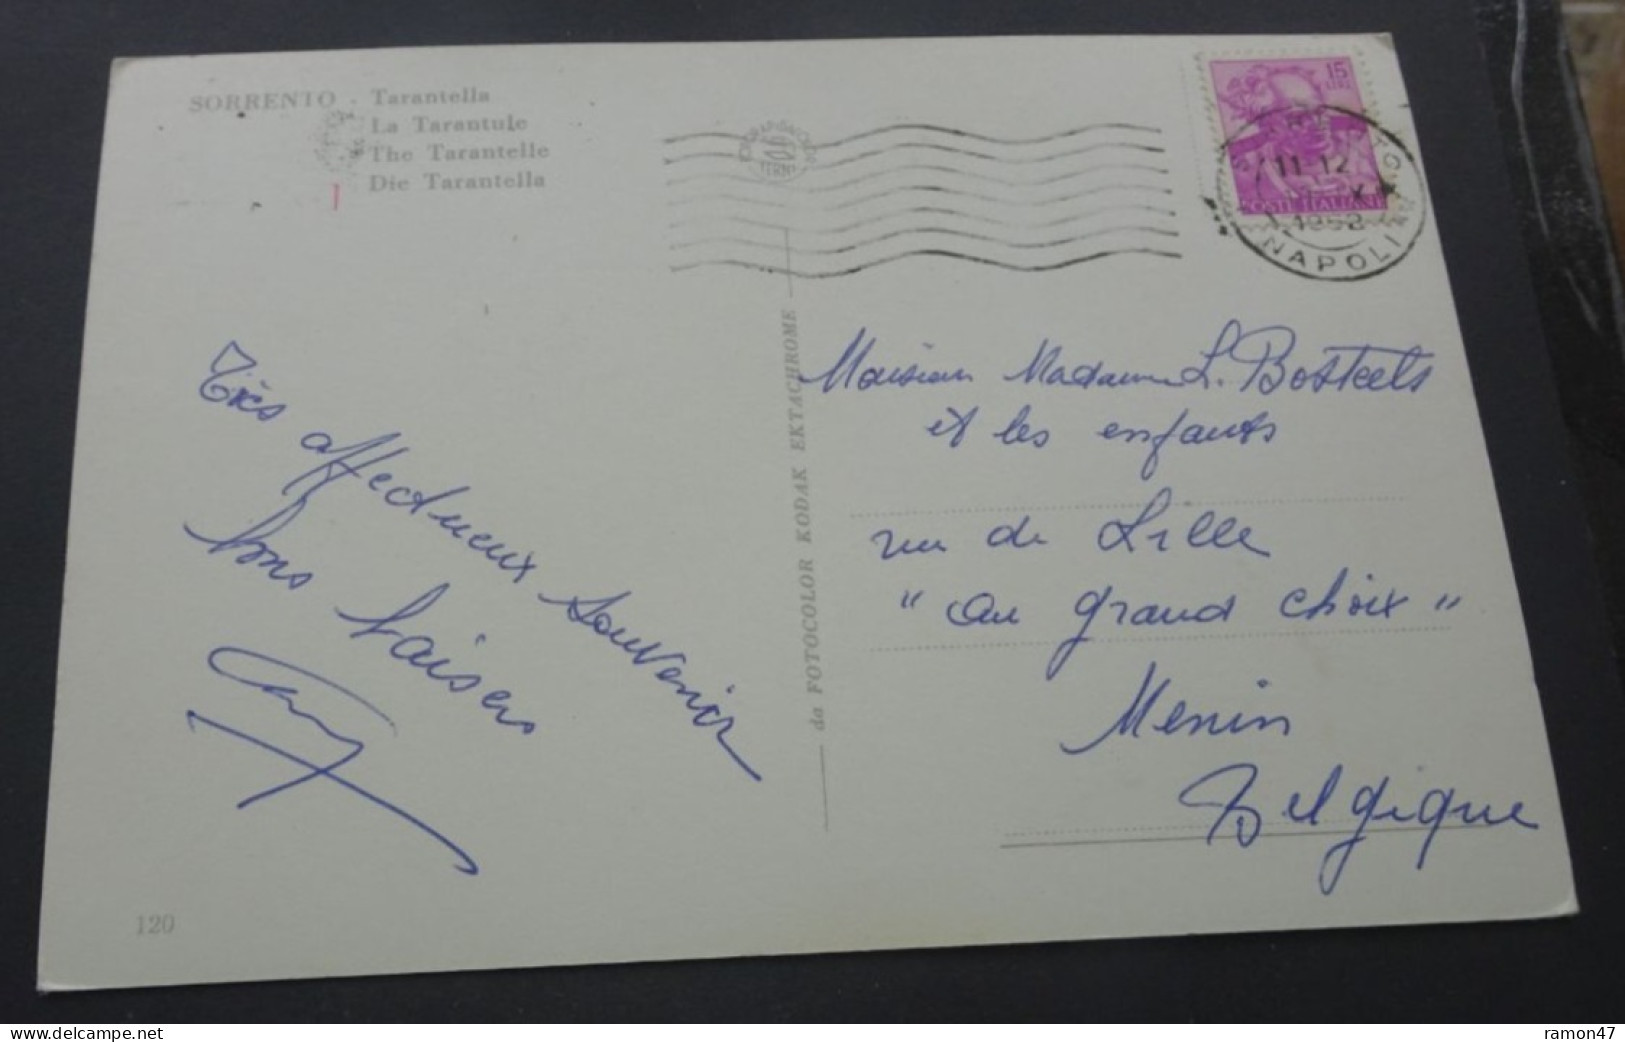 SORRENTO - Tarantella
La Tarantule
The Tarantelle
Die Tarantella
15
LIRE
POSTE ITALIANE
11-12
1962
NAPOLI
Très
affectueux souvenir
bons baisers
da FOTOCOLOR KODAK EKTACHROME
Monsieur Madame L. Bosteels
et les enfants
rue de Lille
"au grand choix"
Menin
Belgique
120
www.delcampe.net
ramon47